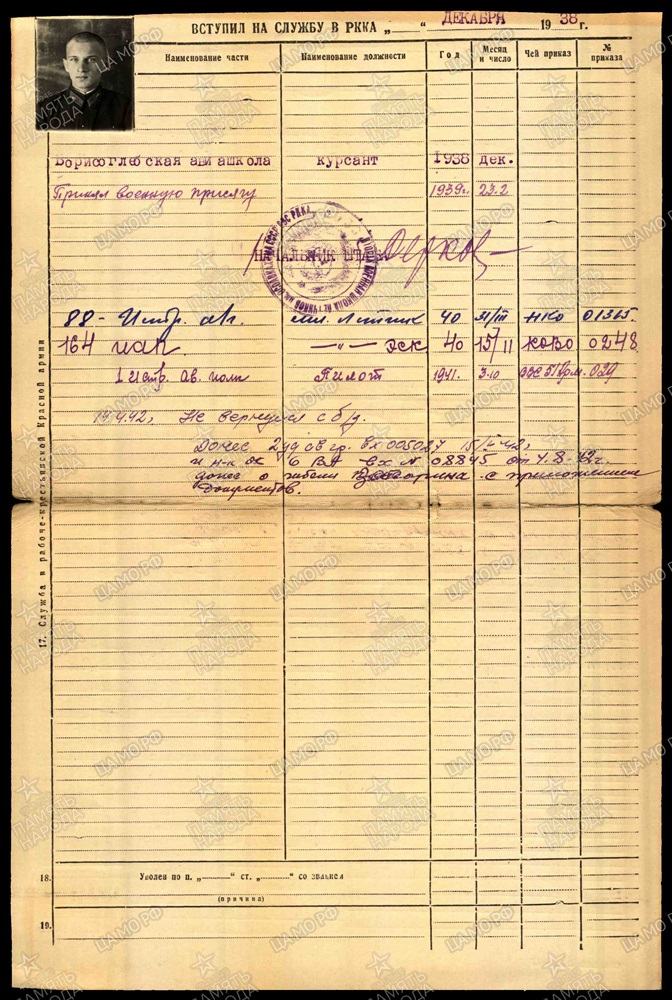 ВСТУПИЛ НА СЛУЖБУ В РККА „ “ ДЕКАБРЯ 1938 г.
Наименование части Наименование должности Год Месяц и число Чей приказ № приказа
Борисоглебская авиашкола курсант 1938 дек.
Принял военную присягу 1939г. 23.2
НАЧАЛЬНИК ШТАБА
88 - Истр. ав. мл. Летчик 40 31/III НКО 01365.
164 иап —„— эск 40 15/II КОВО 0248
1 истр. ав. полк Пилот 1941. 3.10 029
19.4.42, Не вернулся с б/з.
Донес 2 уд ав гр. Вх 005027 15/ 42,
6 ВА вх № 08845 от 4.8.42г.
донес о гибели с приложением
документов.
17. Служба в рабоче-крестьянской Красной армии
18. Уволен по п. „——“ ст. „——“ со
(причина)
19.
ПАМЯТЬ НАРОДА
ЦАМО.РФ